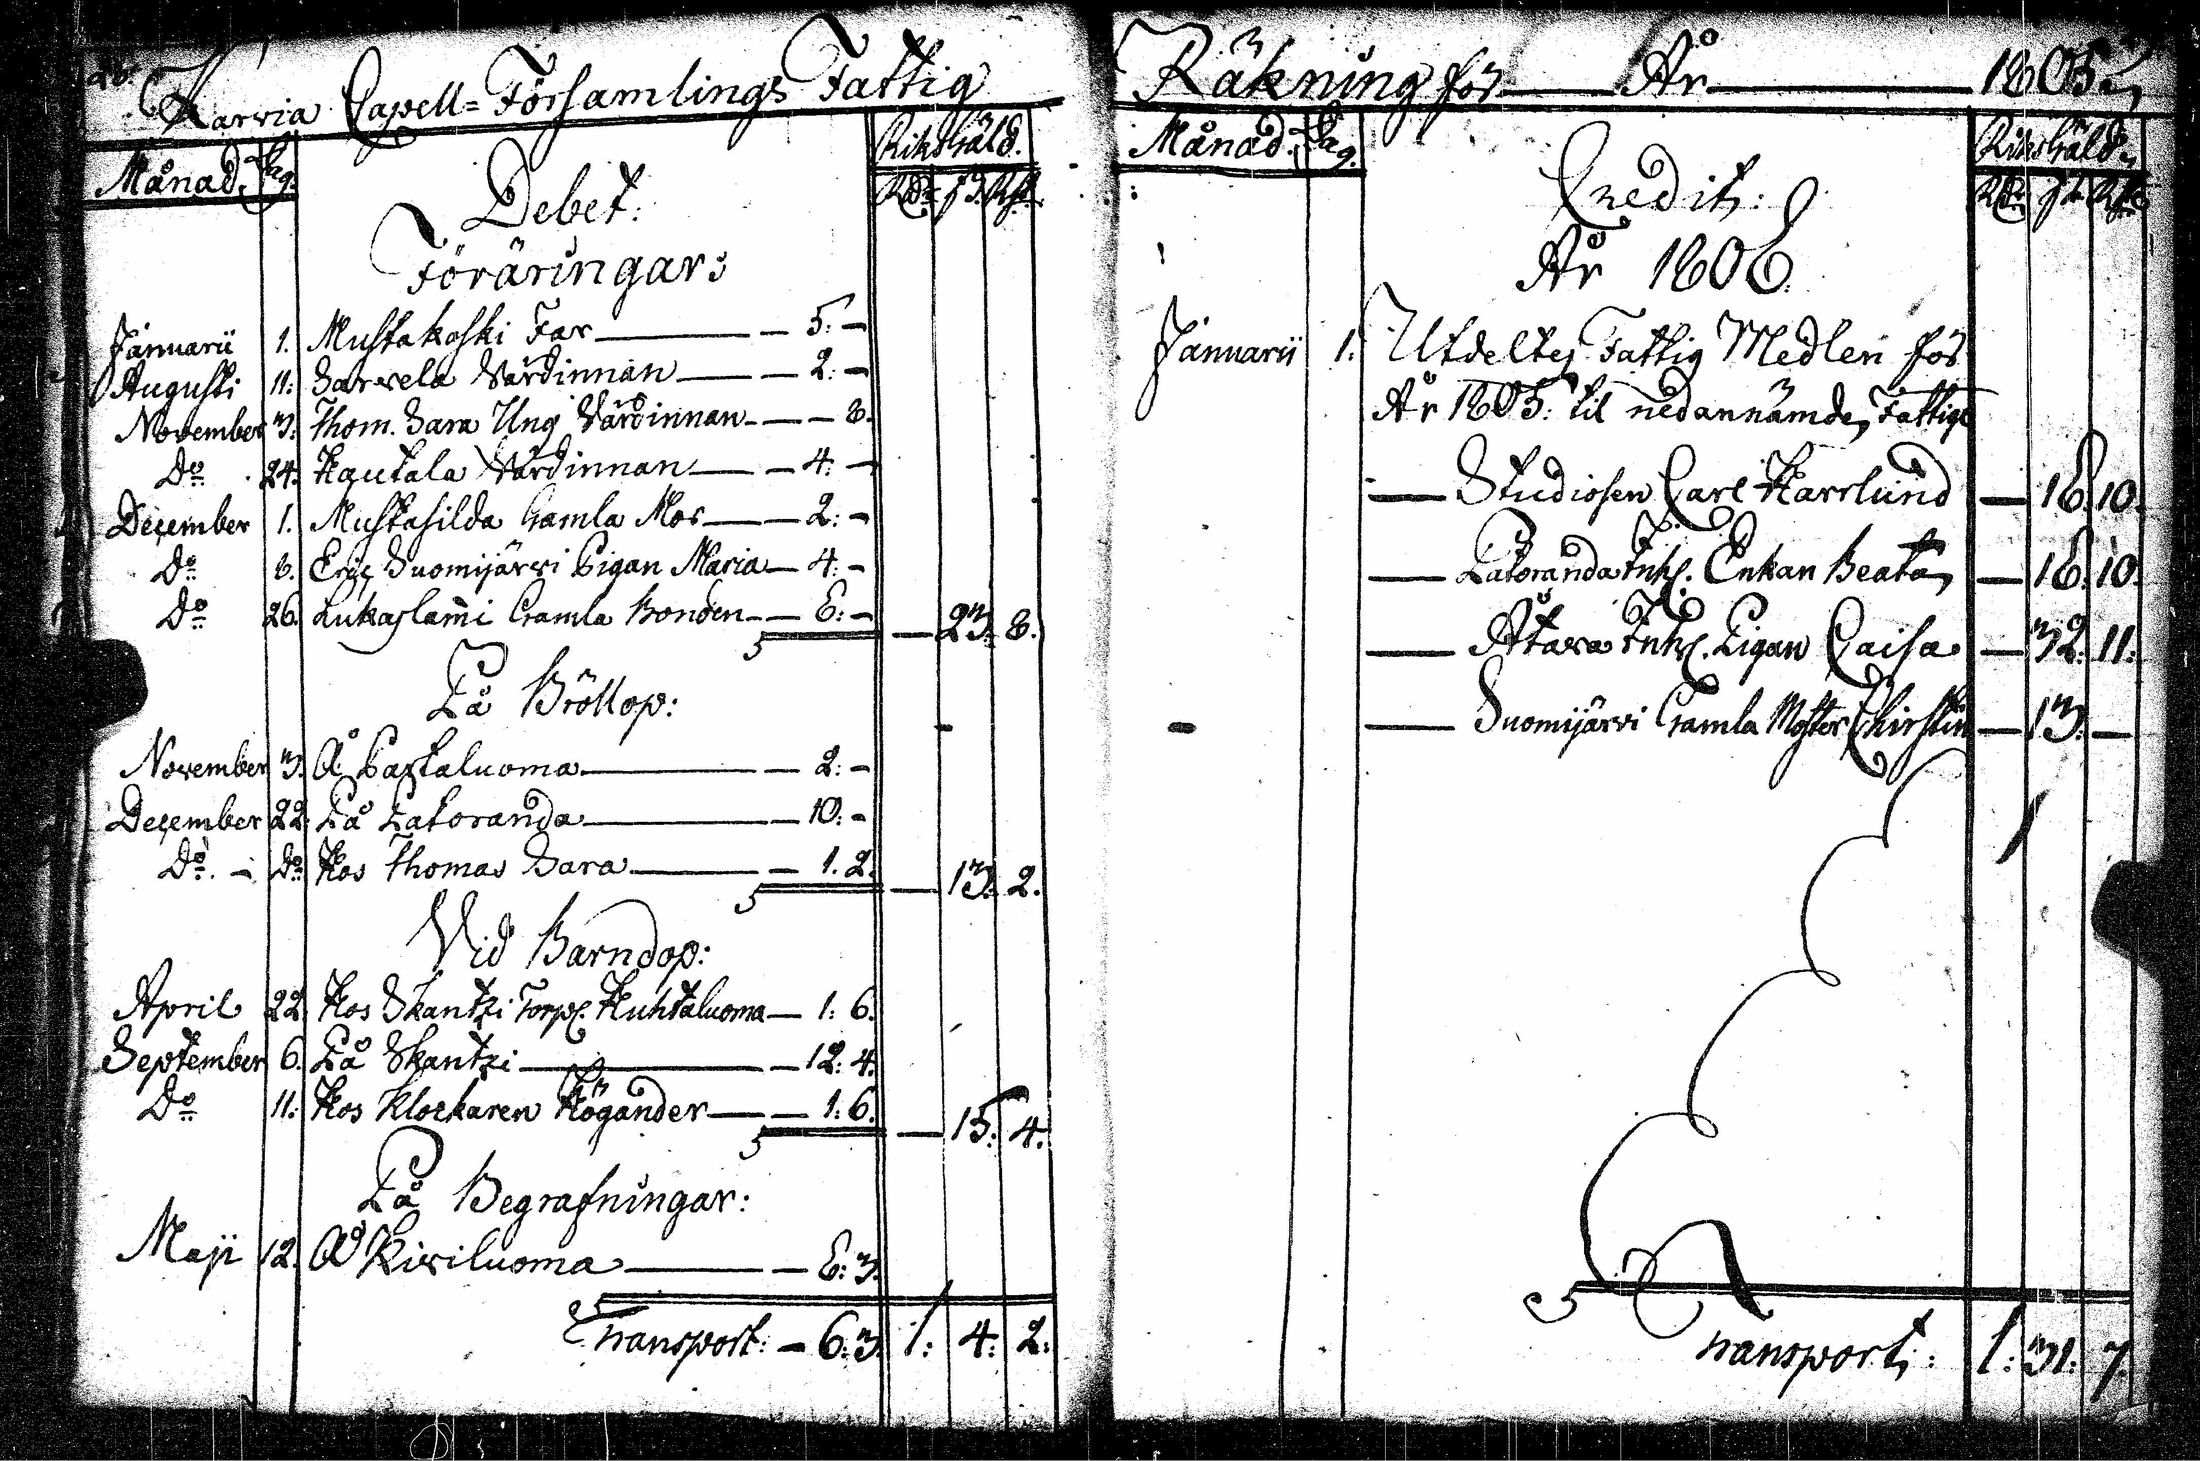 Karvia Capell=Församlings Fattig
Månad. Dag.
Riksgäld.
Rd: ß. Rst.
Debet:
Föräringar:
Januarii 1. Mustakoski Far — 5: -
Augusti 11: Sarvela Värdinnan — 2: -
November 3: Thom. Sara Ung Värdinnan — 8.
Do 24. Kautala Värdinnan — 4: -
December 1. Mustasilda Gamla Mor — 2: -
Do 8. Eric Suomijärvi Pigan Maria — 4: -
Do 26. Lukaslami Gamla Bonden — 6: - — 23: 8.
På Bröllop:
November 3. Å Pastaluoma — 2: -
December 22: På Latoranda — 10: -
Do - Do Hos Thomas Sara — 1. 2. — 13: 2.
Vid Barndop:
April 22. Hos Skantzi Torp. Huhtaluoma — 1: 6.
September 6. På Skantzi — 12: 4.
Do 11: Hos Klockaren Högander — 1: 6. — 15: 4.
På Begrafningar:
Maji 12. Å Kiviluoma — 6: 3.
Transport: — 6: 3. 1: 4: 2:
Räkning för — År — 1805.
Månad. Dag.
Riksgäld.
Rd: ß Rst.
Credit:
År 1806.
Januarii 1: Utdeltes Fattig Medlen för
År 1805: til nedannämde Fattige
— Studiosen Carl Harrlund — 16. 10.
— Latoranda Inh. Enkan Beata — 16. 10.
— Åtava Inh. Pigan Caisa — 32: 11:
— Suomijärvi Gamla Moster Chirstin — 13: —
Transport: 1: 31: 7.